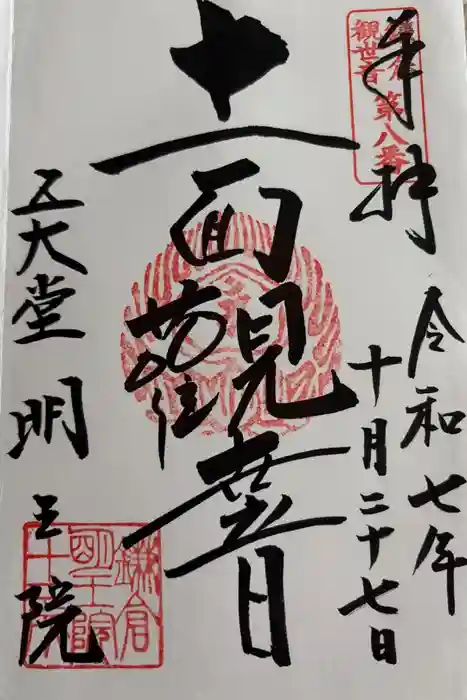 奉拝
鎌倉
観世音
第八番
令和七年
十月二十七日
十一面観音
五大堂
明王院
鎌倉
明王院